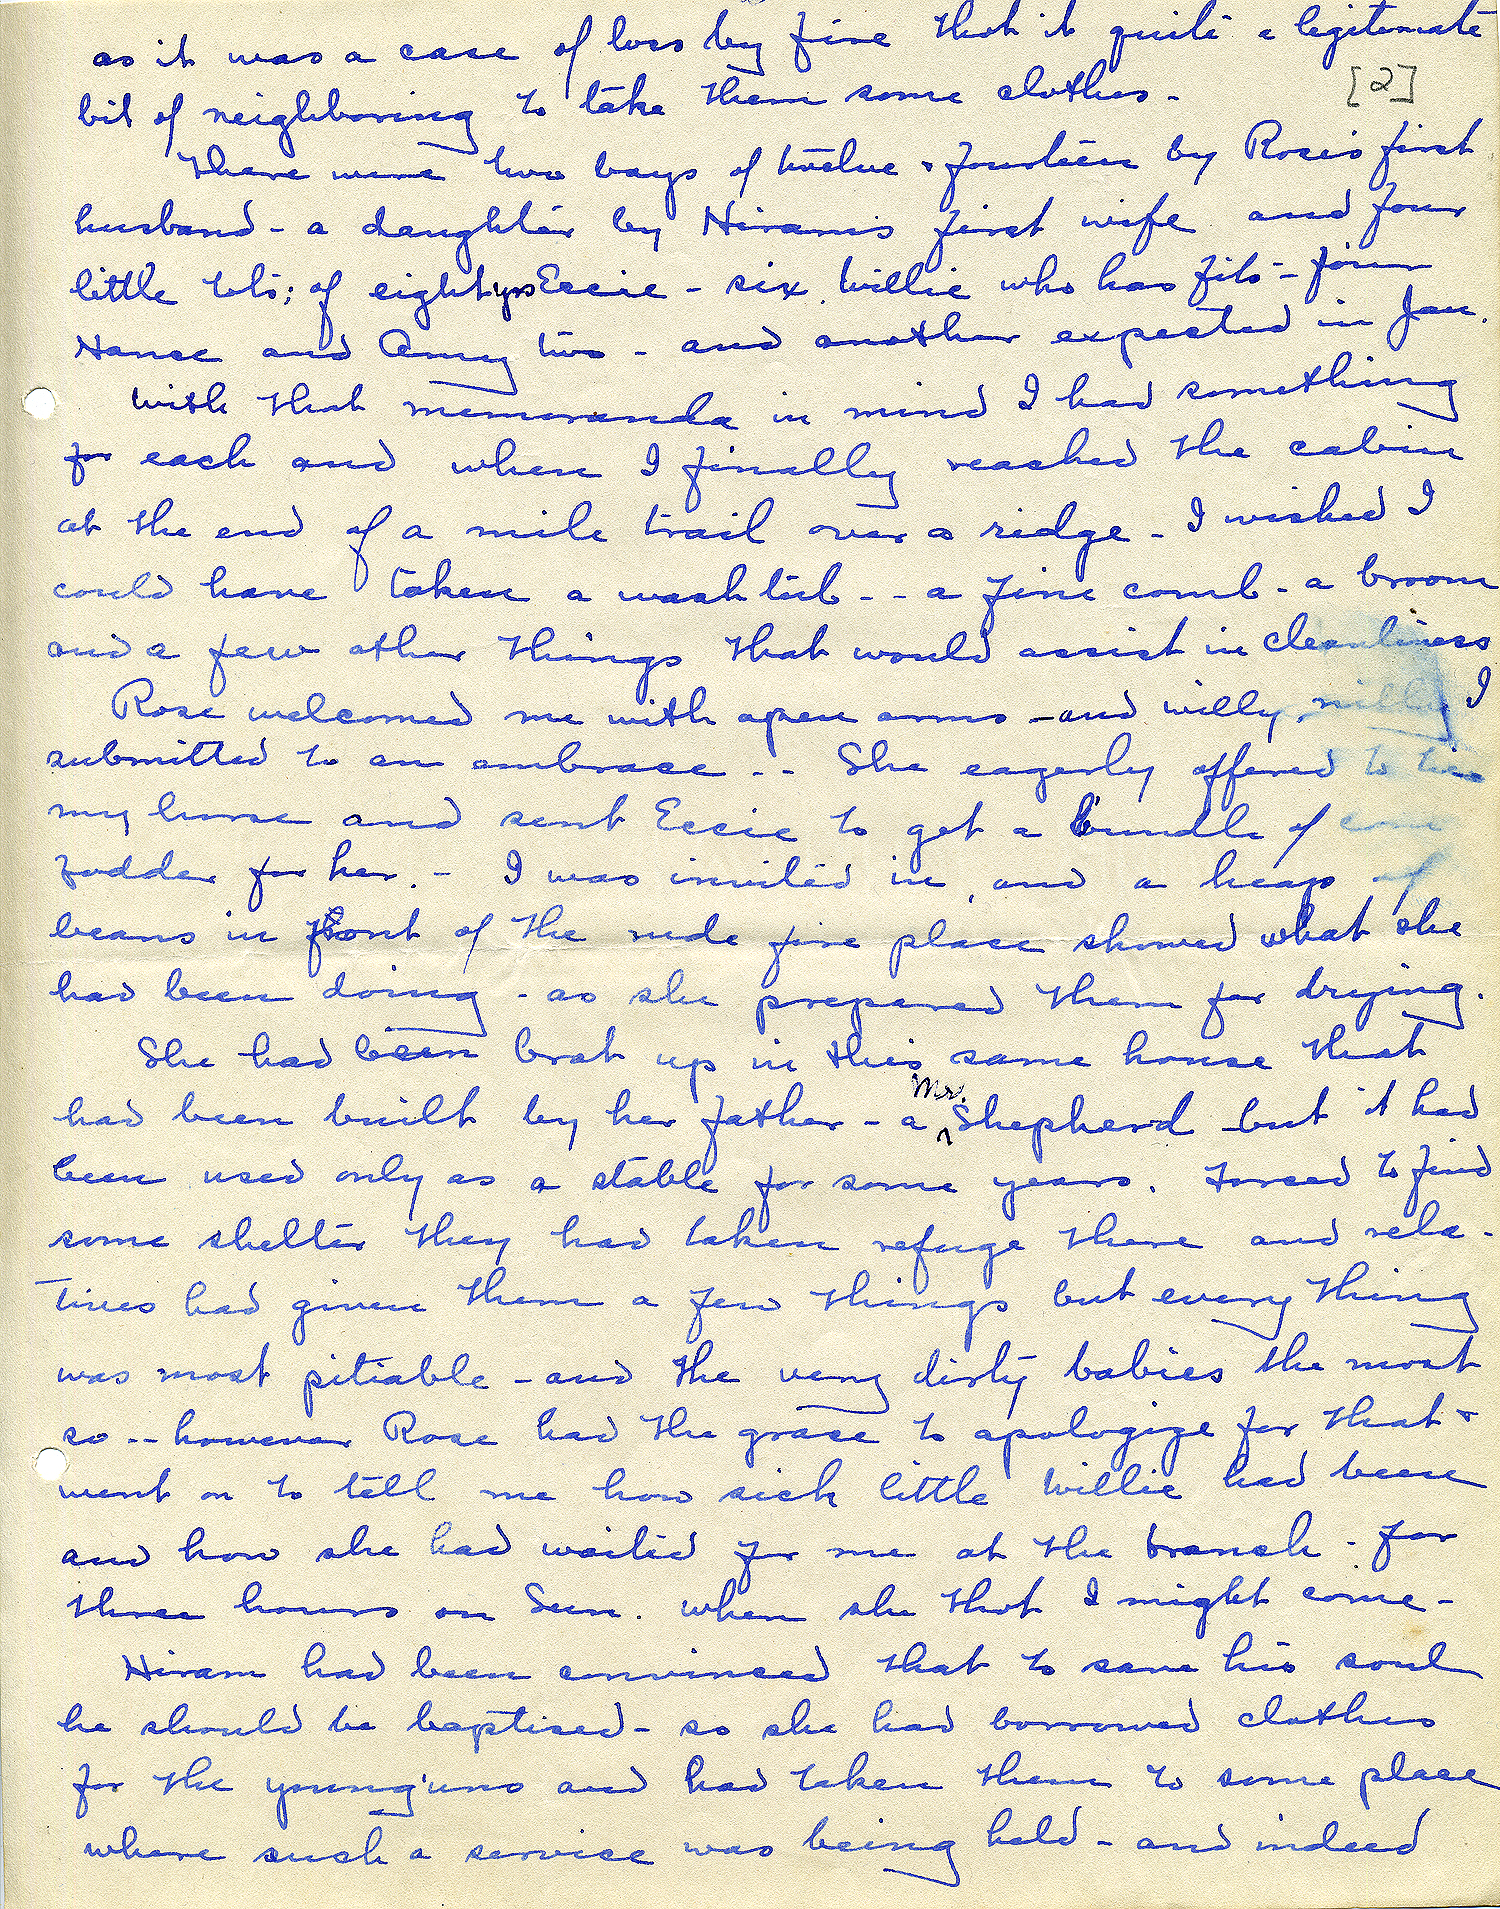 as it was a case of loss by fire thot it quite a legitimate
[2]
bit of neighboring to take them some clothes -
There were two boys of twelve & fourteen by Rose's first
husband - a daughter by Hiram's first wife and four
little tots; of eight yrs Essie - six Willie who has fits - four
Nance and Amy two - and another expected in Jan.
With that memoranda in mind I had something
for each and when I finally reached the cabin
at the end of a mile trail over a ridge - I wished I
could have taken a wash tub - - a fine comb - a broom
and a few other things that would assist in cleanliness
Rose welcomed me with open arms - and willy nilly I
submitted to an embrace - - She eagerly offered to tie
my horse and sent Essie to get a bundle of corn
fodder for her. - I was invited in, and a heap of
beans in front of the rude fire place showed what she
had been doing - as she prepared them for drying.
She had been brot up in this same house that
had been built by her father - a Mr. Shepherd but it had
been used only as a stable for some years. Forced to find
some shelter they had taken refuge there and rela-
tives had given them a few things but every thing
was most pitiable - and the very dirty babies the most
so - - however Rose had the grace to apologize for that &
went on to tell me how sick little Willie had been
and how she had waited for me at the branch - for
three hours on Sun. when she thot I might come -
Hiram had been convinced that to save his soul
he should be baptised - so she had borrowed clothes
for the young'uns and had taken them to some place
where such a service was being held - and indeed